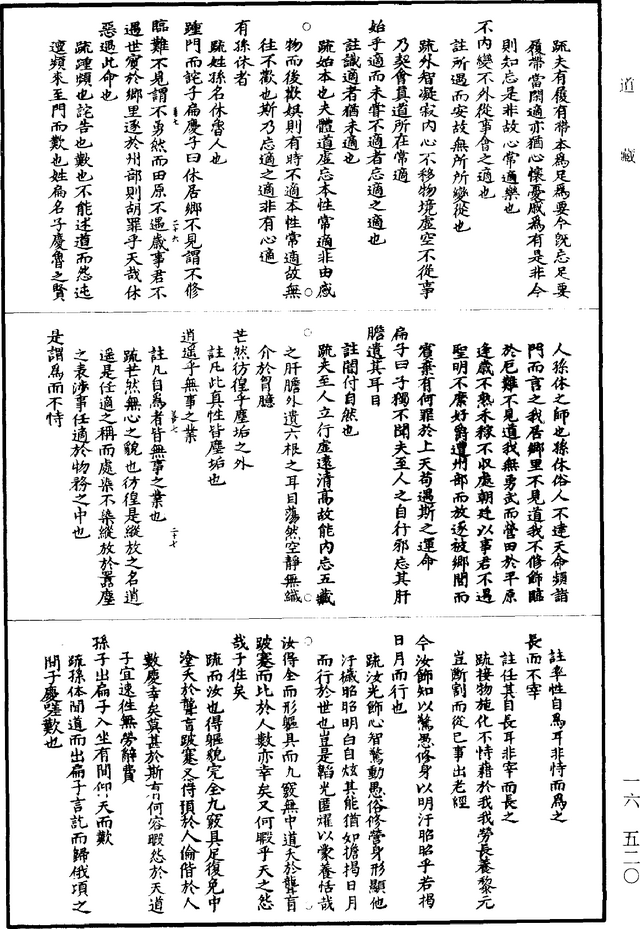 道藏
疏夫有履有帶本為足為要今既忘足要
履帶當閑適亦猶心懷憂慼為有是非今
則知忘是非故心常適樂也
不內變不外從事會之適也
註所遇而安故無所變從也
疏外智凝寂內心不移物境虛空不從事
乃契會真道所在常適
始乎適而未嘗不適者忘適之適也
註識適者猶未適也
疏始本也夫體道虛忘本性常適非由感
物而後歡娛則有時不適本性常適故無
往不歡也斯乃忘適之適非有心適
有孫休者
疏姓孫名休魯人也
踵門而詫子扁慶子曰休居鄉不見謂不修
臨難不見謂不勇然而田原不遇歲事君不
遇世賓於鄉里逐於州部則胡罪乎天哉休
惡遇此命也
疏踵頻也詫告也歎也不能述道而怨迍
邅頻來至門而歎也姓扁名子慶魯之賢
人孫休之師也孫休俗人不達天命頻詣
門而言之我居鄉里不見道我不修飾臨
於厄難不見道我無勇武而營田於平原
逢歲不熟禾稼不收處朝廷以事君不遇
聖明不縻好爵遭州部而放逐被鄉閭而
賓棄有何罪於上天苟遇斯之運命
扁子曰子獨不聞夫至人之自行邪忘其肝
膽遺其耳目
註闇付自然也
疏夫至人立行虛遠清高故能內忘五藏
之肝膽外遺六根之耳目蕩然空靜無纖
介於胷臆
芒然彷徨乎塵垢之外
註凡非真性皆塵垢也
逍遙乎無事之業
註凡自為者皆無事之業也
疏芒然無心之貌也彷徨是縱放之名逍
遙是任適之稱而處染不染縱放於囂塵
之表涉事任適於物務之中也
是謂為而不恃
註率性自為耳非恃而為之
長而不宰
註任其自長耳非宰而長之
疏接物施化不恃藉於我我勞長養黎元
豈斷割而從已事出老經
今汝飾知以驚愚修身以明汙昭昭乎若揭
日月而行也
疏汝光飾心智驚動愚俗修營身形顯他
汙穢昭昭明白自炫其能猶如擔揭日月
而行於世也豈是韜光匿燿以蒙養恬哉
汝得全而形軀具而九竅無中道夭於聾盲
跛蹇而比於人數亦幸矣又何暇乎天之怨
哉子往矣
疏而汝也得軀貌完全九竅具足復免中
塗夭於聾盲跛蹇又得預於人倫偕於人
數慶幸矣莫甚於斯有何容暇怨於天道
子宜速往無勞辭費
孫子出扁子入坐有間仰天而歎
疏孫休聞道而出扁子言訖而歸俄頃之
間子慶嗟歎也
一六 五二〇